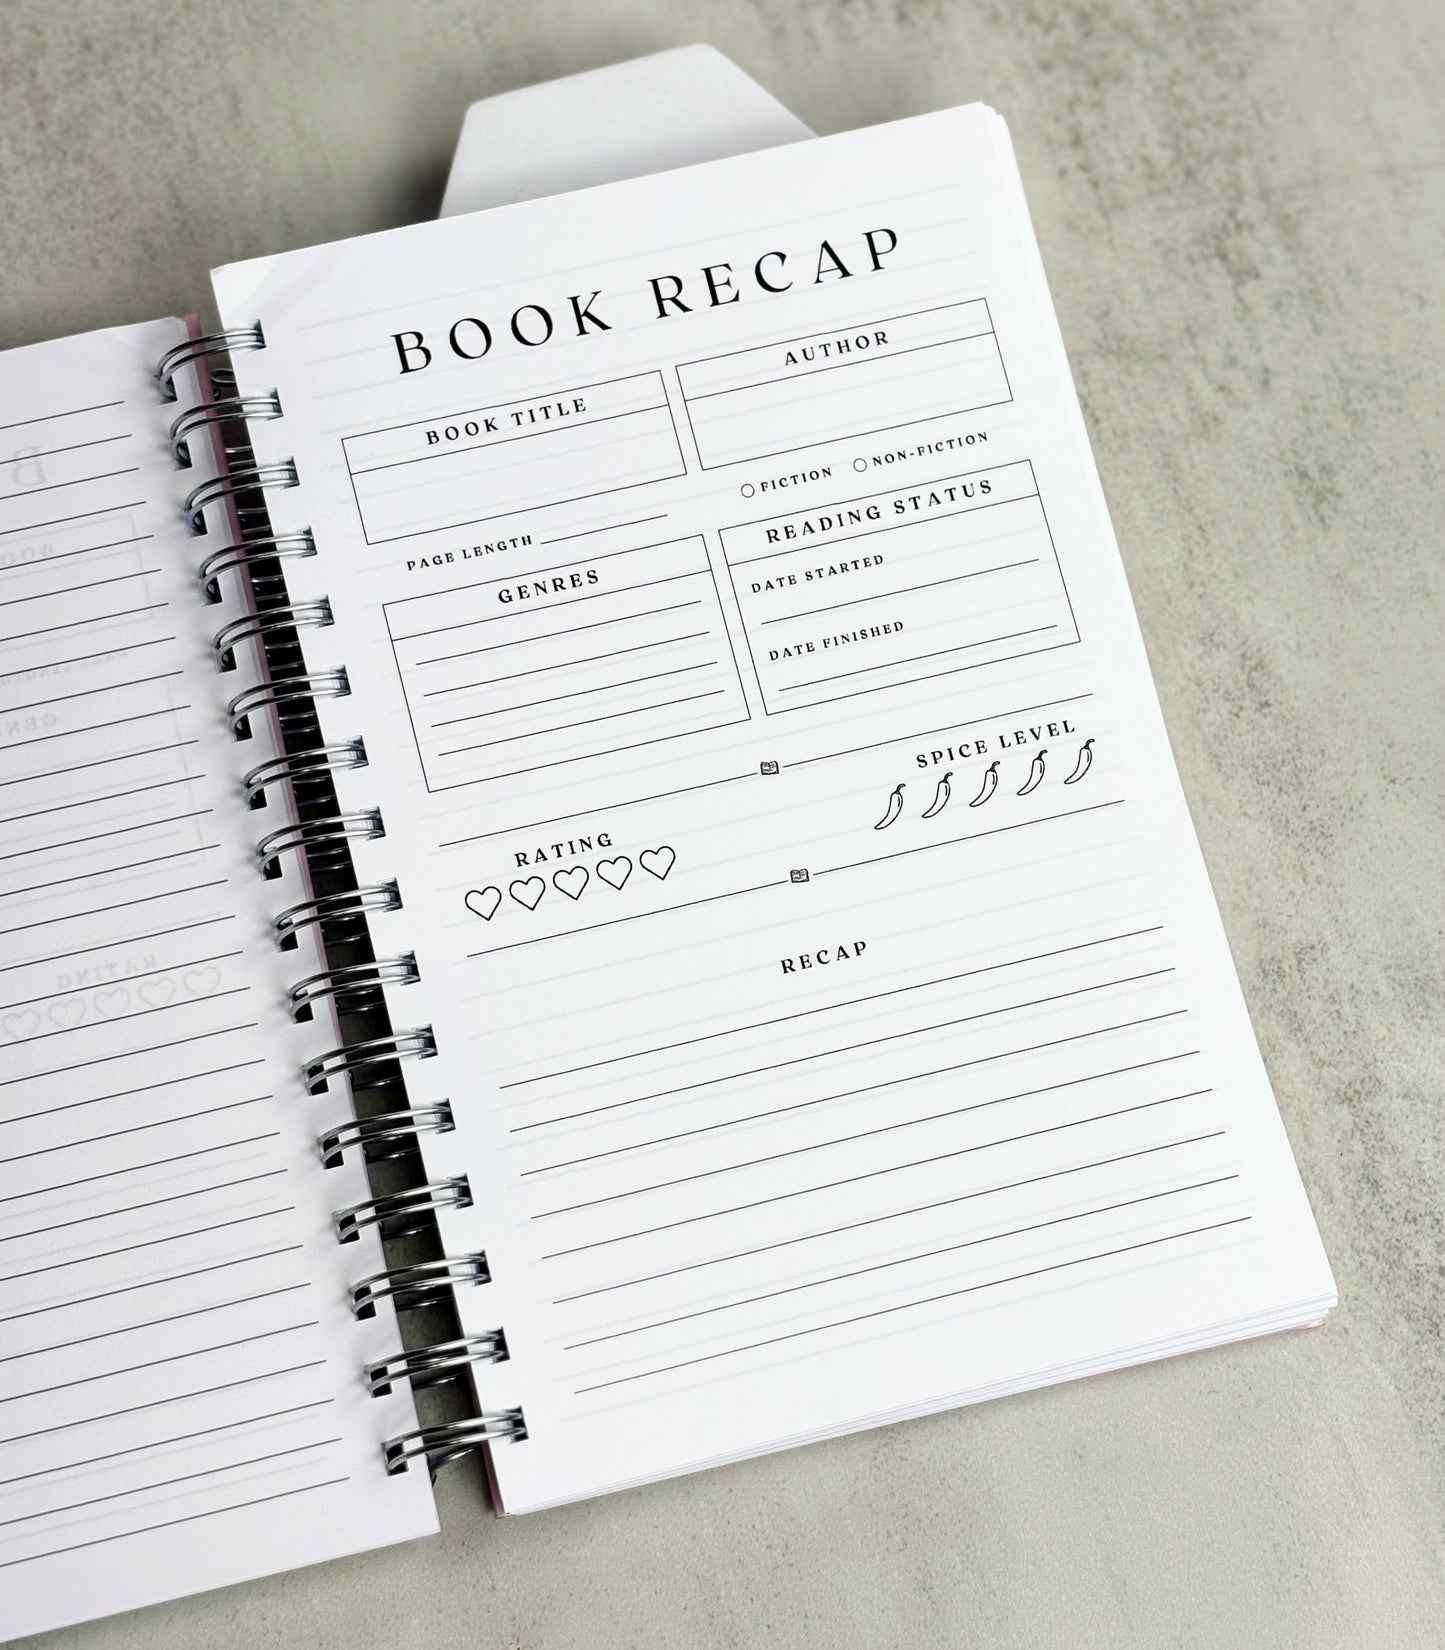 BOOK RECAP
BOOK TITLE
AUTHOR
PAGE LENGTH
FICTION NON-FICTION
GENRES
READING STATUS
DATE STARTED
DATE FINISHED
RATING
SPICE LEVEL
RECAP